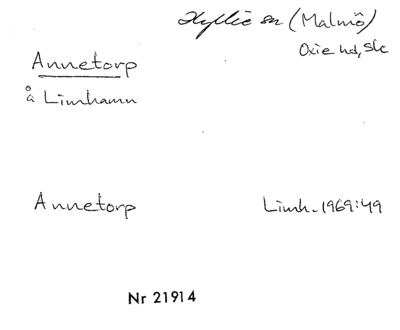 Hyllie sn (Malmö)
Oxie hd, Sk
Annetorp
å Limhamn
Annetorp Limh. 1969:49
Nr 21914